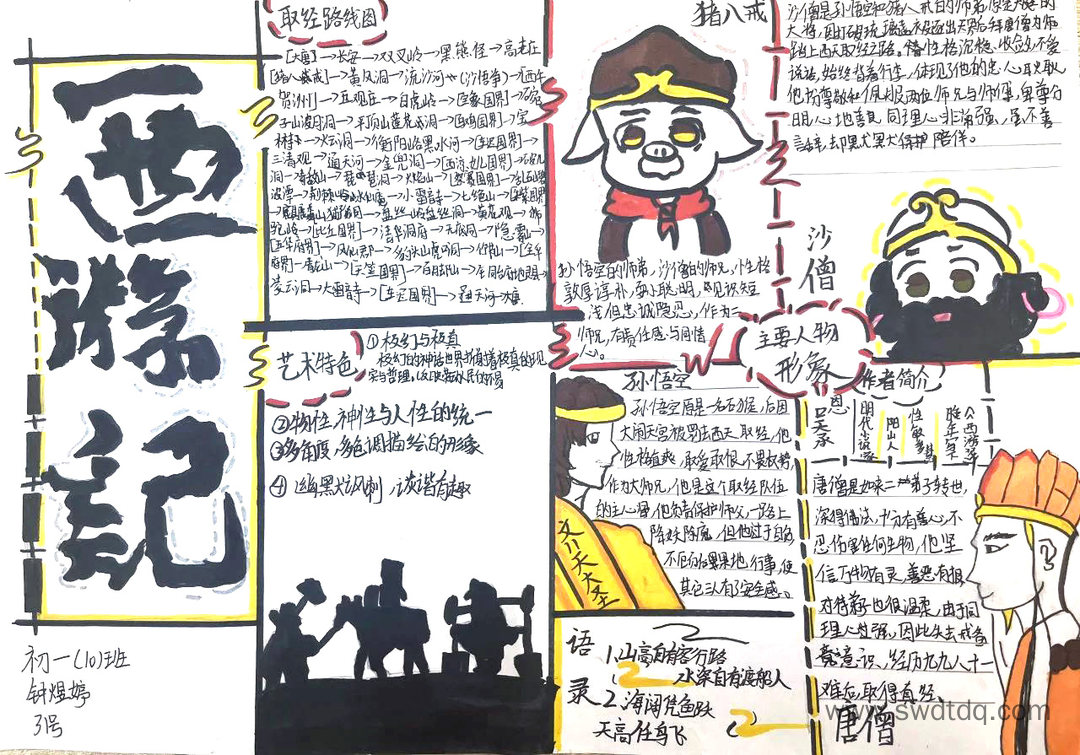 西游記
初一(10)班
31号
取经路线图
[大唐]→长安→双叉岭→黑熊怪→高老庄
[猪八戒]→黄风洞→流沙河(沙悟净)→[西牛
贺洲]→五观庄→白虎岭→[宝象国界]→碗
子山波月洞→平顶山莲花洞→[乌鸡国界]→宝
林寺→火云洞→衡阳峪黑水河→[车迟国界]→
三清观→通天河→金兜洞→[西凉女儿国界]→
洞→琵琶洞→火焰山→[祭赛国界]→乱石山碧
波潭→荆棘岭木仙庵→小雷音寺→七绝山→
→麒麟山獬豸洞→盘丝岭盘丝洞→黄花观→狮
驼岭→[比丘国界]→清华洞府→无底洞→隐雾山→
→凤仙郡→豹头山虎口洞→竹节山→[金平
府界]→青龙山→[天竺国界]→
→大雷音寺→
艺术特色
①极幻与极真
极幻的神话世界折射着极真的现
②物性、神性与人性的统一
③多角度、多色调描绘的形象
④幽默讽刺,诙谐有趣
猪八戒
孙悟空的师弟,沙僧的师兄,性格
敦厚淳朴,耍小聪明,见识短
浅但忠诚隐忍,作为二
师兄,有责任感与同情
心。
沙僧是孙悟空和猪八戒的师弟,原是天庭的
大将,因打破琉璃盏被逐出天庭,拜唐僧为师
踏上西天取经路,情性格沉稳、收敛、不爱
说话,始终背着行李,体现了他的忠心耿耿
他均尊敬和佩服两位师兄与师傅,卑尊分
明,心地善良,同理心非常强,虽不善
言辞,却默默保护陪伴。
沙僧
主要人物
形象
孙悟空
孙悟空原是一名石猴,后因
大闹天宫被罚去西天取经,他
性格直爽,敢爱敢恨,不畏权势
作为大师兄,他是这个取经队伍
的主心骨,他负责保护师父,一路上
降妖除魔,但他过于自
其它三人有了安全感。
齐天大圣
作者简介
吴承恩
明代小说家
山阳人
性敏多慧
唐僧是如来二弟子转世,
深得佛法,十分有善心,不
忍伤害任何生物,他坚
信万物有灵,善恶有报
对待弟子也很温柔,由于同
理心过强,因此失去戒备
意识,经历九九八十一
难后取得真经。
唐僧
语录
1、山高自有客行路
水深自有渡船人
2、海阔凭鱼跃
天高任鸟飞
www.swdtdq.com